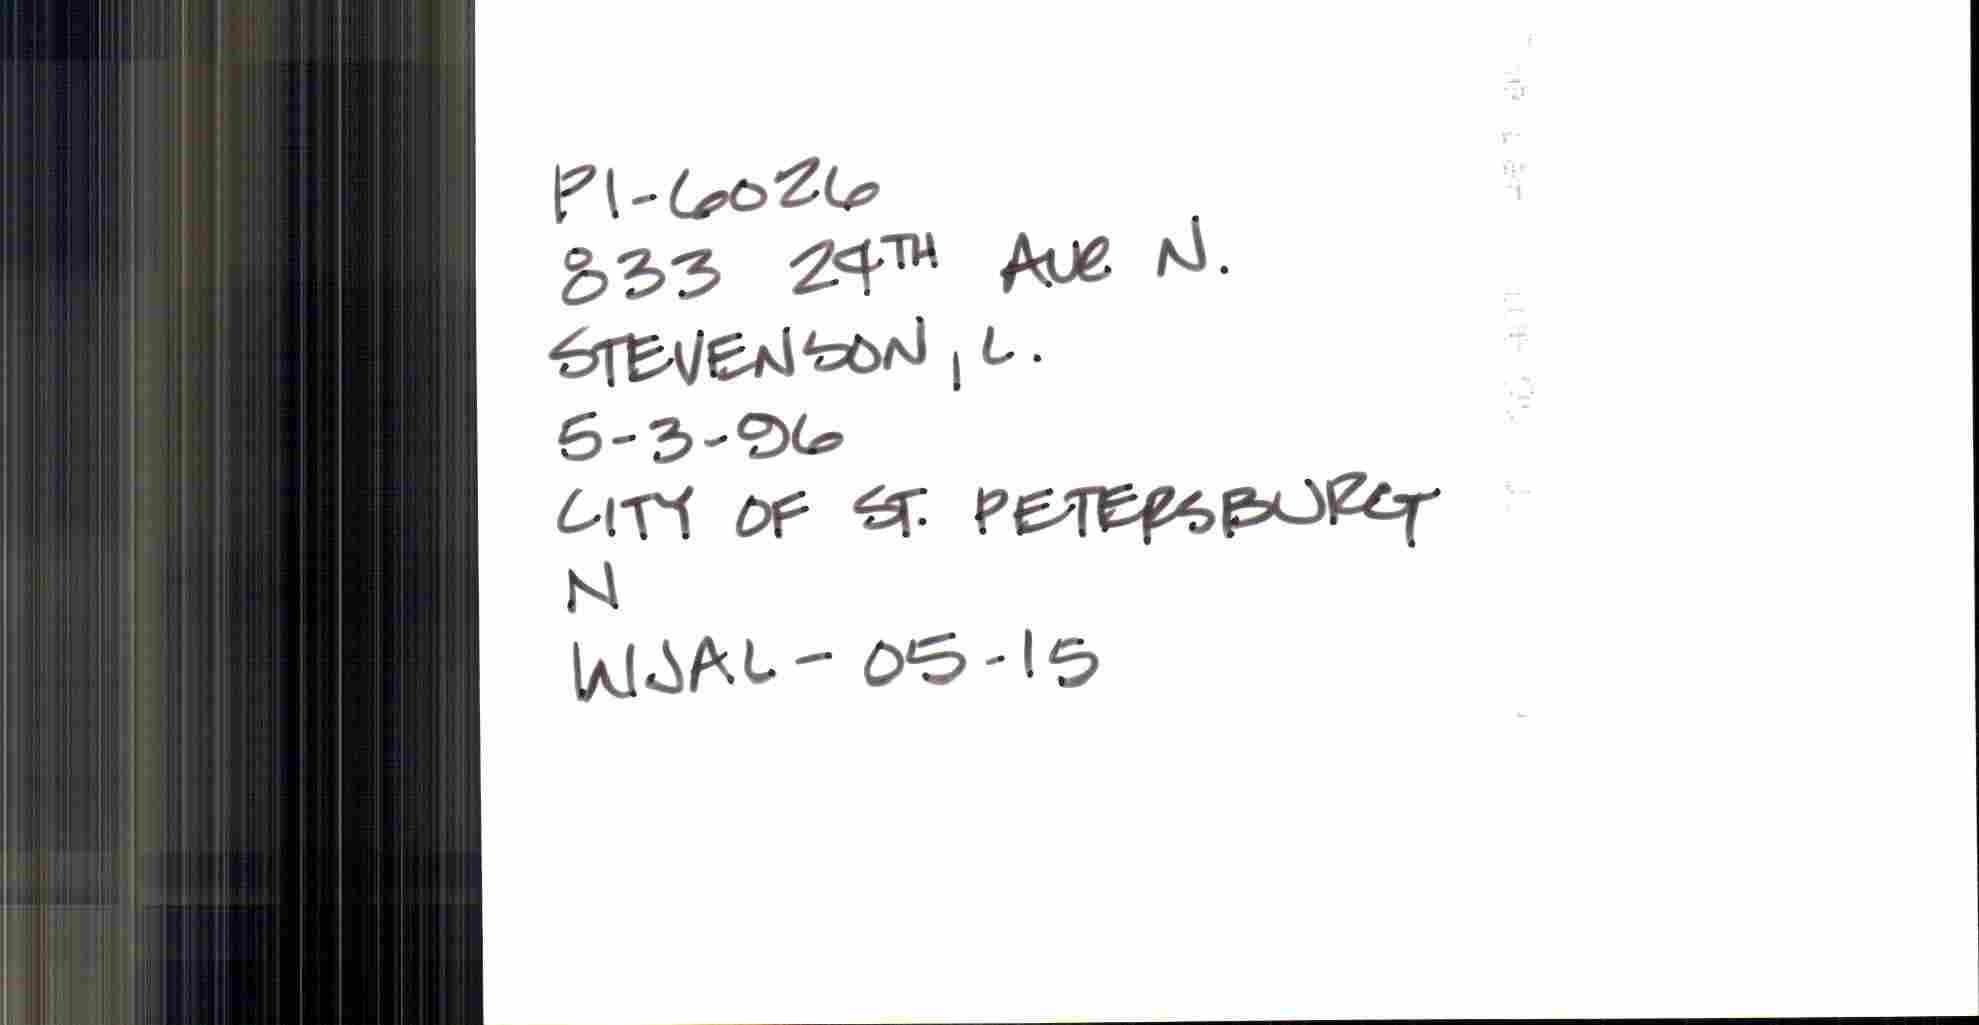 PI-6026
833 24TH AVE N.
STEVENSON, L.
5-3-96
CITY OF ST. PETERSBURG
N
WJAL-05-15